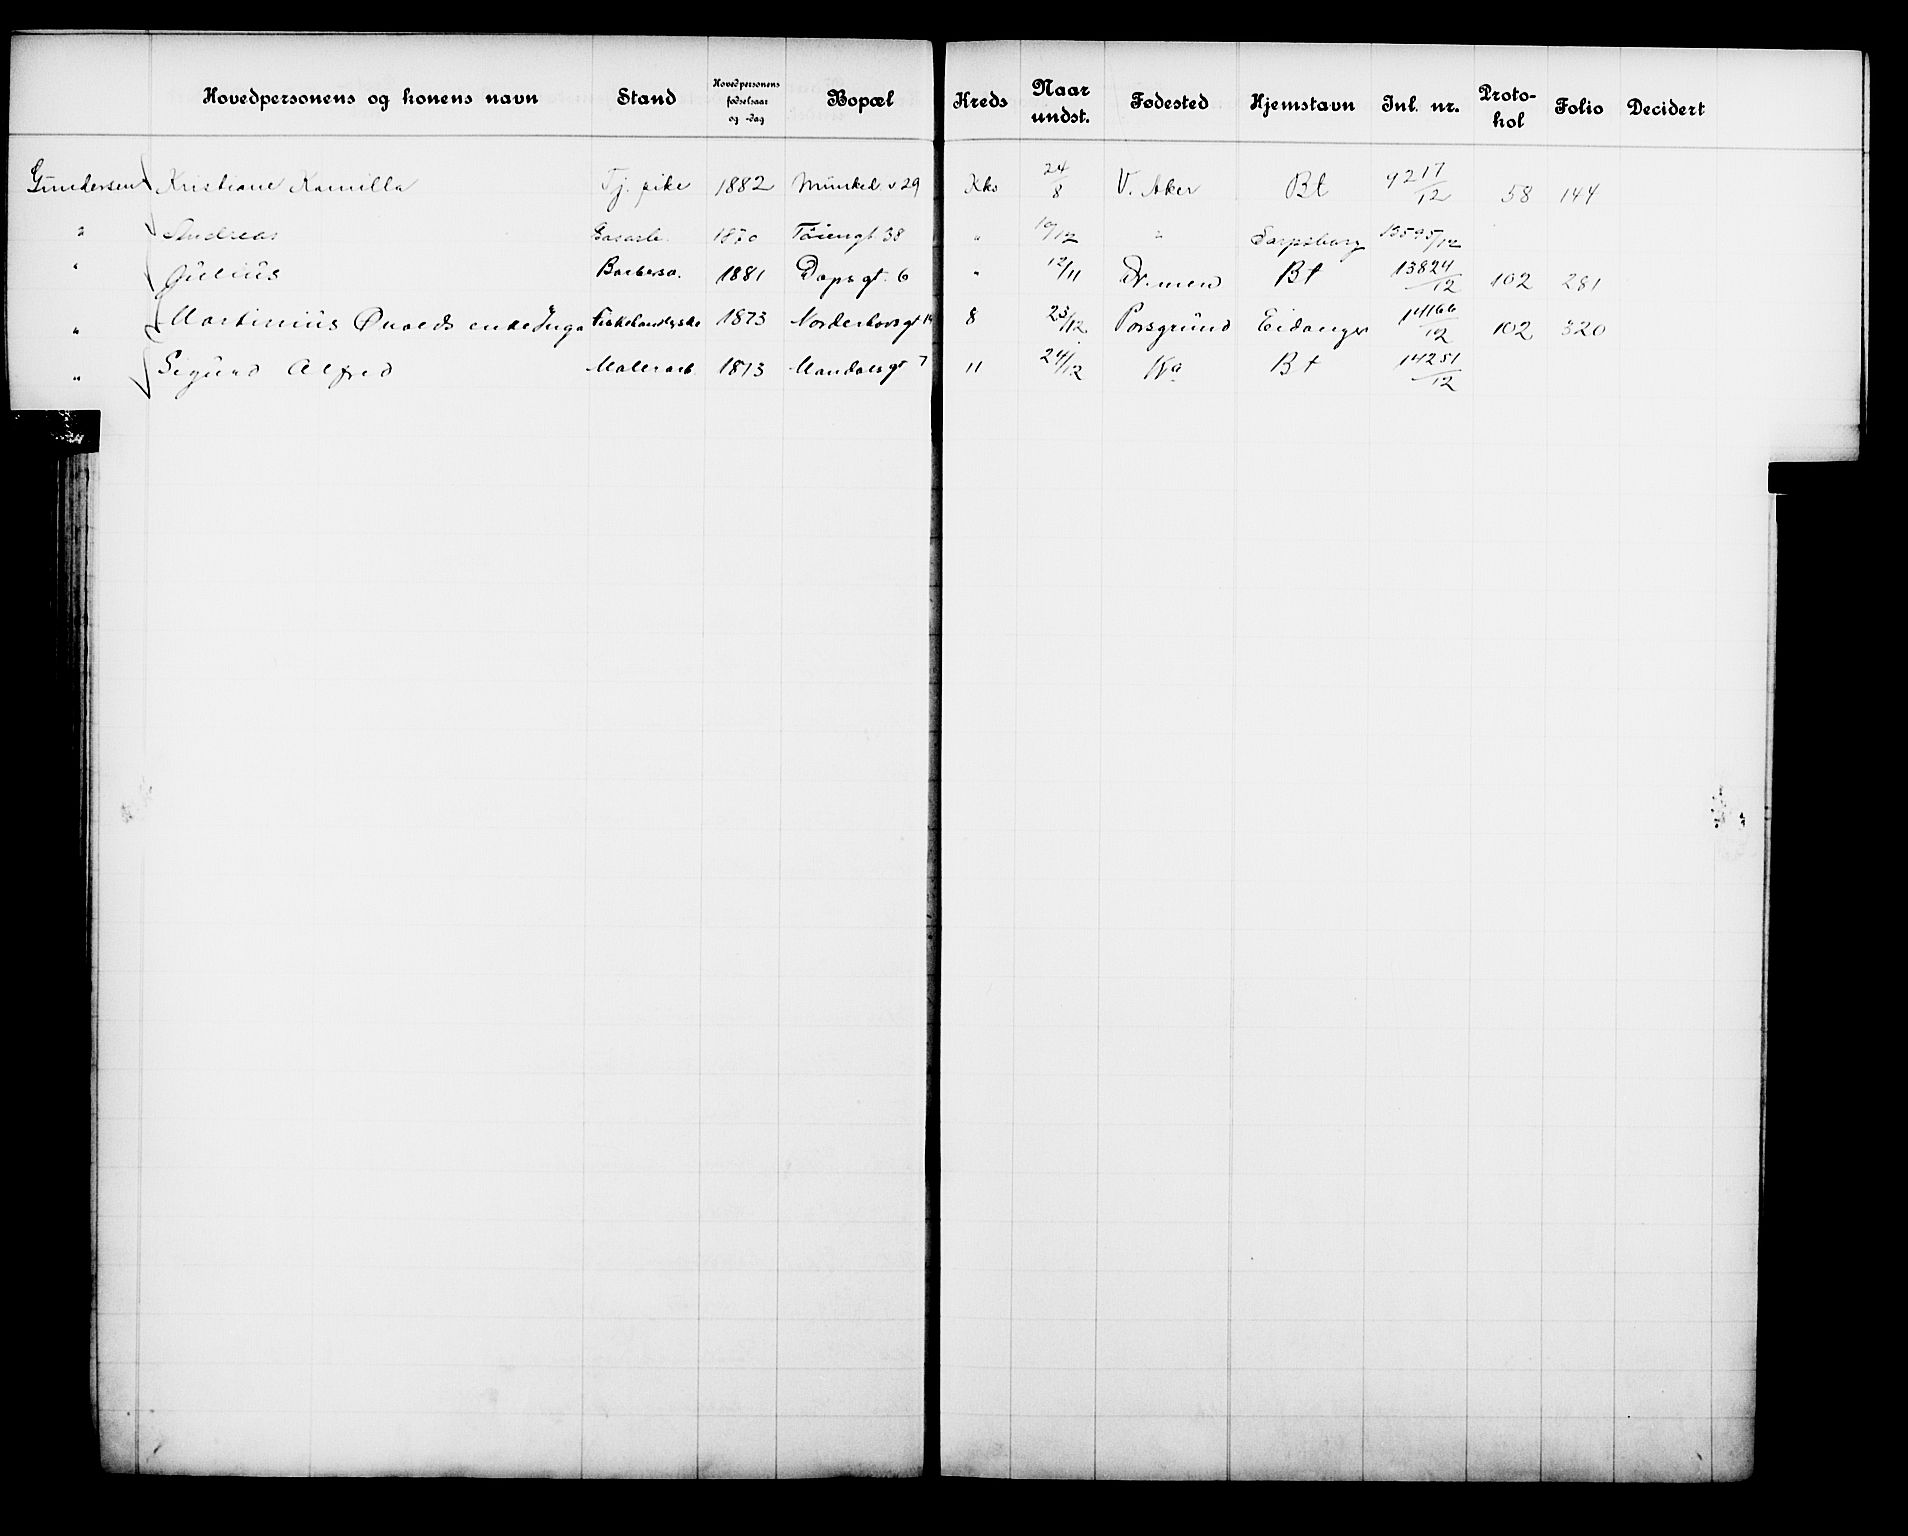 Hovedpersonens og konens navn Stand Hovedpersonens fødselsaar og -dag Bopæl Kreds Naar undst. Fødested Hjemstavn Inl. nr. Proto-kol Folio Decidert
Gundersen Kristiane Kamilla Tj. pike 1882 Munked v 29 Kks 24/8 V. Aker Bt 4217/12 58 144
" Andreas Gasarb. 1870 Tøiengt 38 " 10/12 " Sarpsborg 13595/12
" Julius Barbersv. 1881 Dops gt. 6 " 12/11 Dr.men Bt 13824/12 102 281
" Martinius Øvalds enke Inga 1873 Norderhovsgt 14 8 23/12 Porsgrund Eidanger 14166/12 102 320
" Sigurd Alfred Malerarb 1873 Mandalsgt 7 11 24/12 Kra Bt 14251/12